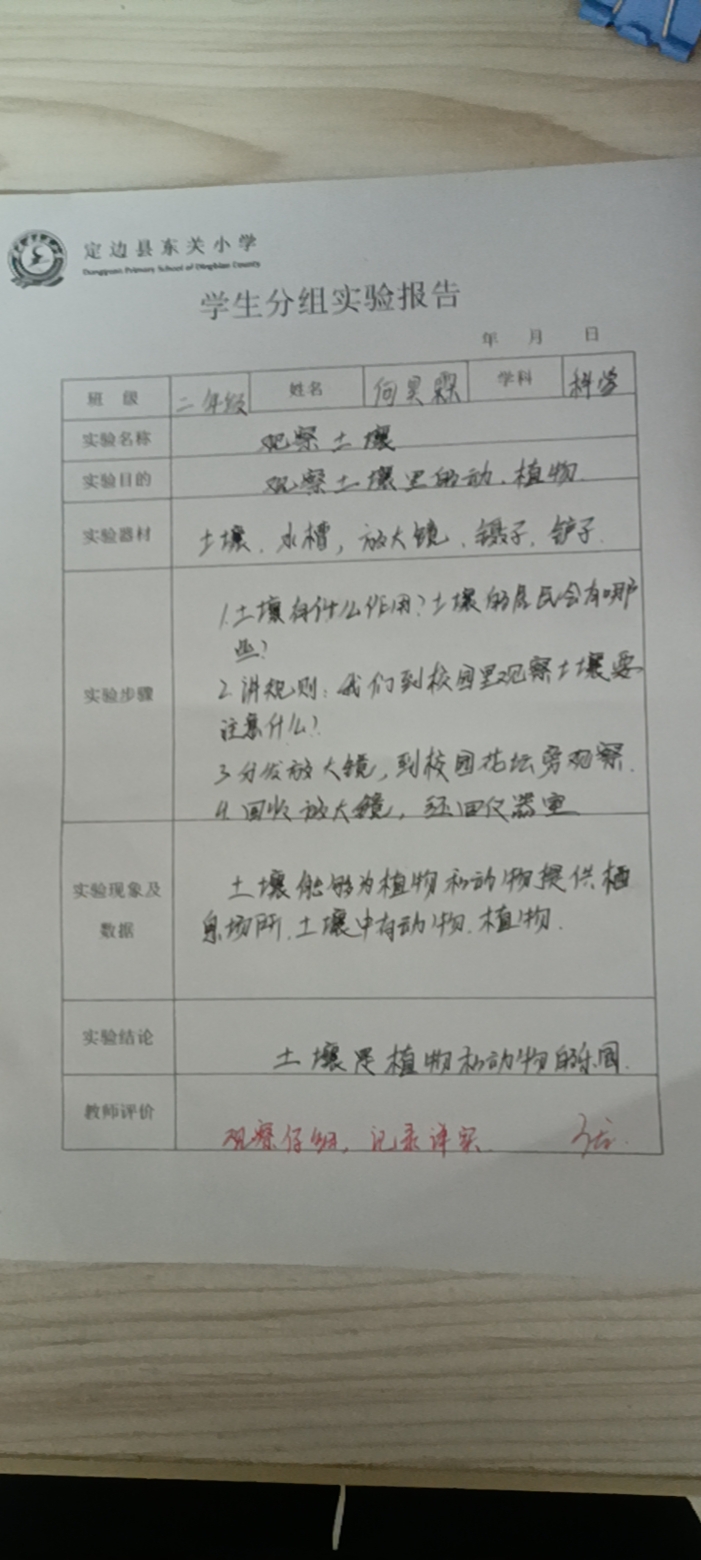 定边县东关小学
Dongguan Primary School of Dingbian County
学生分组实验报告
年 月 日
班 级 二年级 姓名 何昊霖 学科 科学
实验名称 观察土壤
实验目的 观察土壤里的动、植物.
实验器材 土壤、水槽，放大镜、镊子、铲子.
实验步骤
1.土壤有什么作用？土壤的居民会有哪
些？
2.讲规则：我们到校园里观察土壤要
注意什么？
3.分发放大镜，到校园花坛旁观察.
4.回收放大镜，还回仪器室
实验现象及
数据
土壤能够为植物和动物提供栖
息场所.土壤中有动物、植物.
实验结论 土壤是植物和动物的乐园.
教师评价 观察仔细，记录详实.